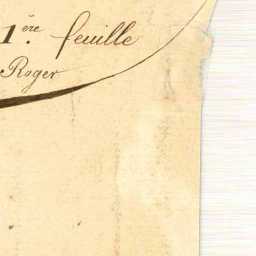 1.ère feuille
Roger